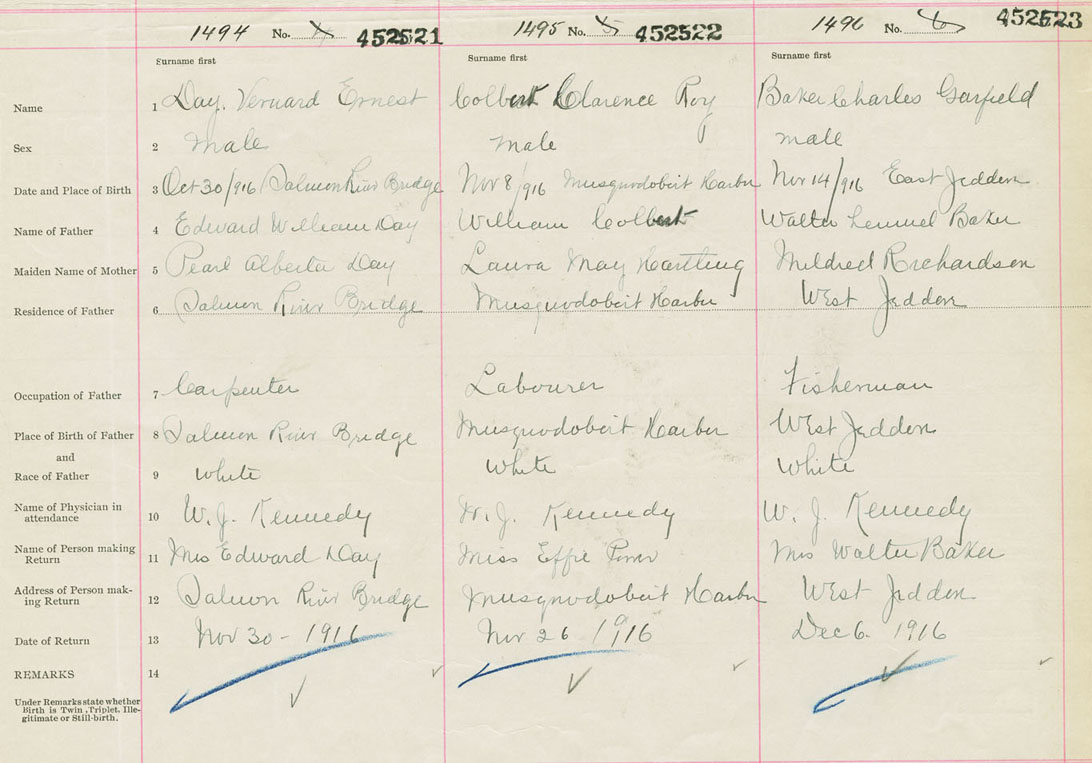 1494 No. 452521 1495 No. 5 452522 1496 No. 6 452523
Surname first Surname first Surname first
Name 1 Day. Vernard Ernest Colbert Clarence Roy Baker Charles Garfield
Sex 2 Male male male
Date and Place of Birth 3 Oct 30/916 Salmon River Bridge Nov 8/916 Musquodoboit Harbor Nov 14/916 East Jeddore
Name of Father 4 Edward William Day William Colbert Walter Lemuel Baker
Maiden Name of Mother 5 Pearl Alberta Day Laura May Hartling Mildred Richardson
Residence of Father 6 Salmon River Bridge Musquodoboit Harbor West Jeddore
Occupation of Father 7 Carpenter Labourer Fisherman
Place of Birth of Father 8 Salmon River Bridge Musquodoboit Harbor West Jeddore
and
Race of Father 9 white White White
Name of Physician in
attendance 10 W. J. Kennedy W. J. Kennedy W. J. Kennedy
Name of Person making
Return 11 Mrs Edward Day Miss Effie Mrs Walter Baker
Address of Person mak-
ing Return 12 Salmon River Bridge Musquodoboit Harbor West Jeddore
Date of Return 13 Nov 30 - 1916 Nov 26 1916 Dec 6. 1916
REMARKS 14
Under Remarks state whether
Birth is Twin, Triplet, Ille-
gitimate or Still-birth.